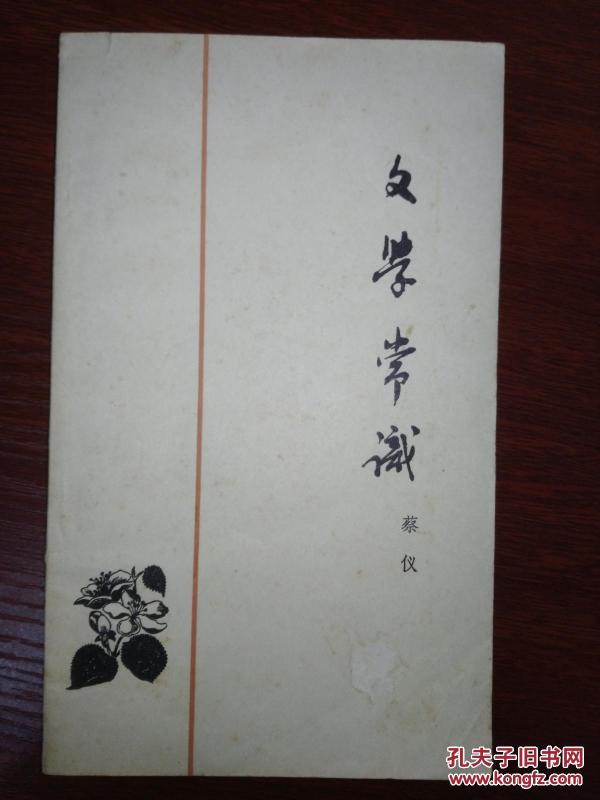 文学常识
蔡仪
孔夫子旧书网
www.kongfz.com